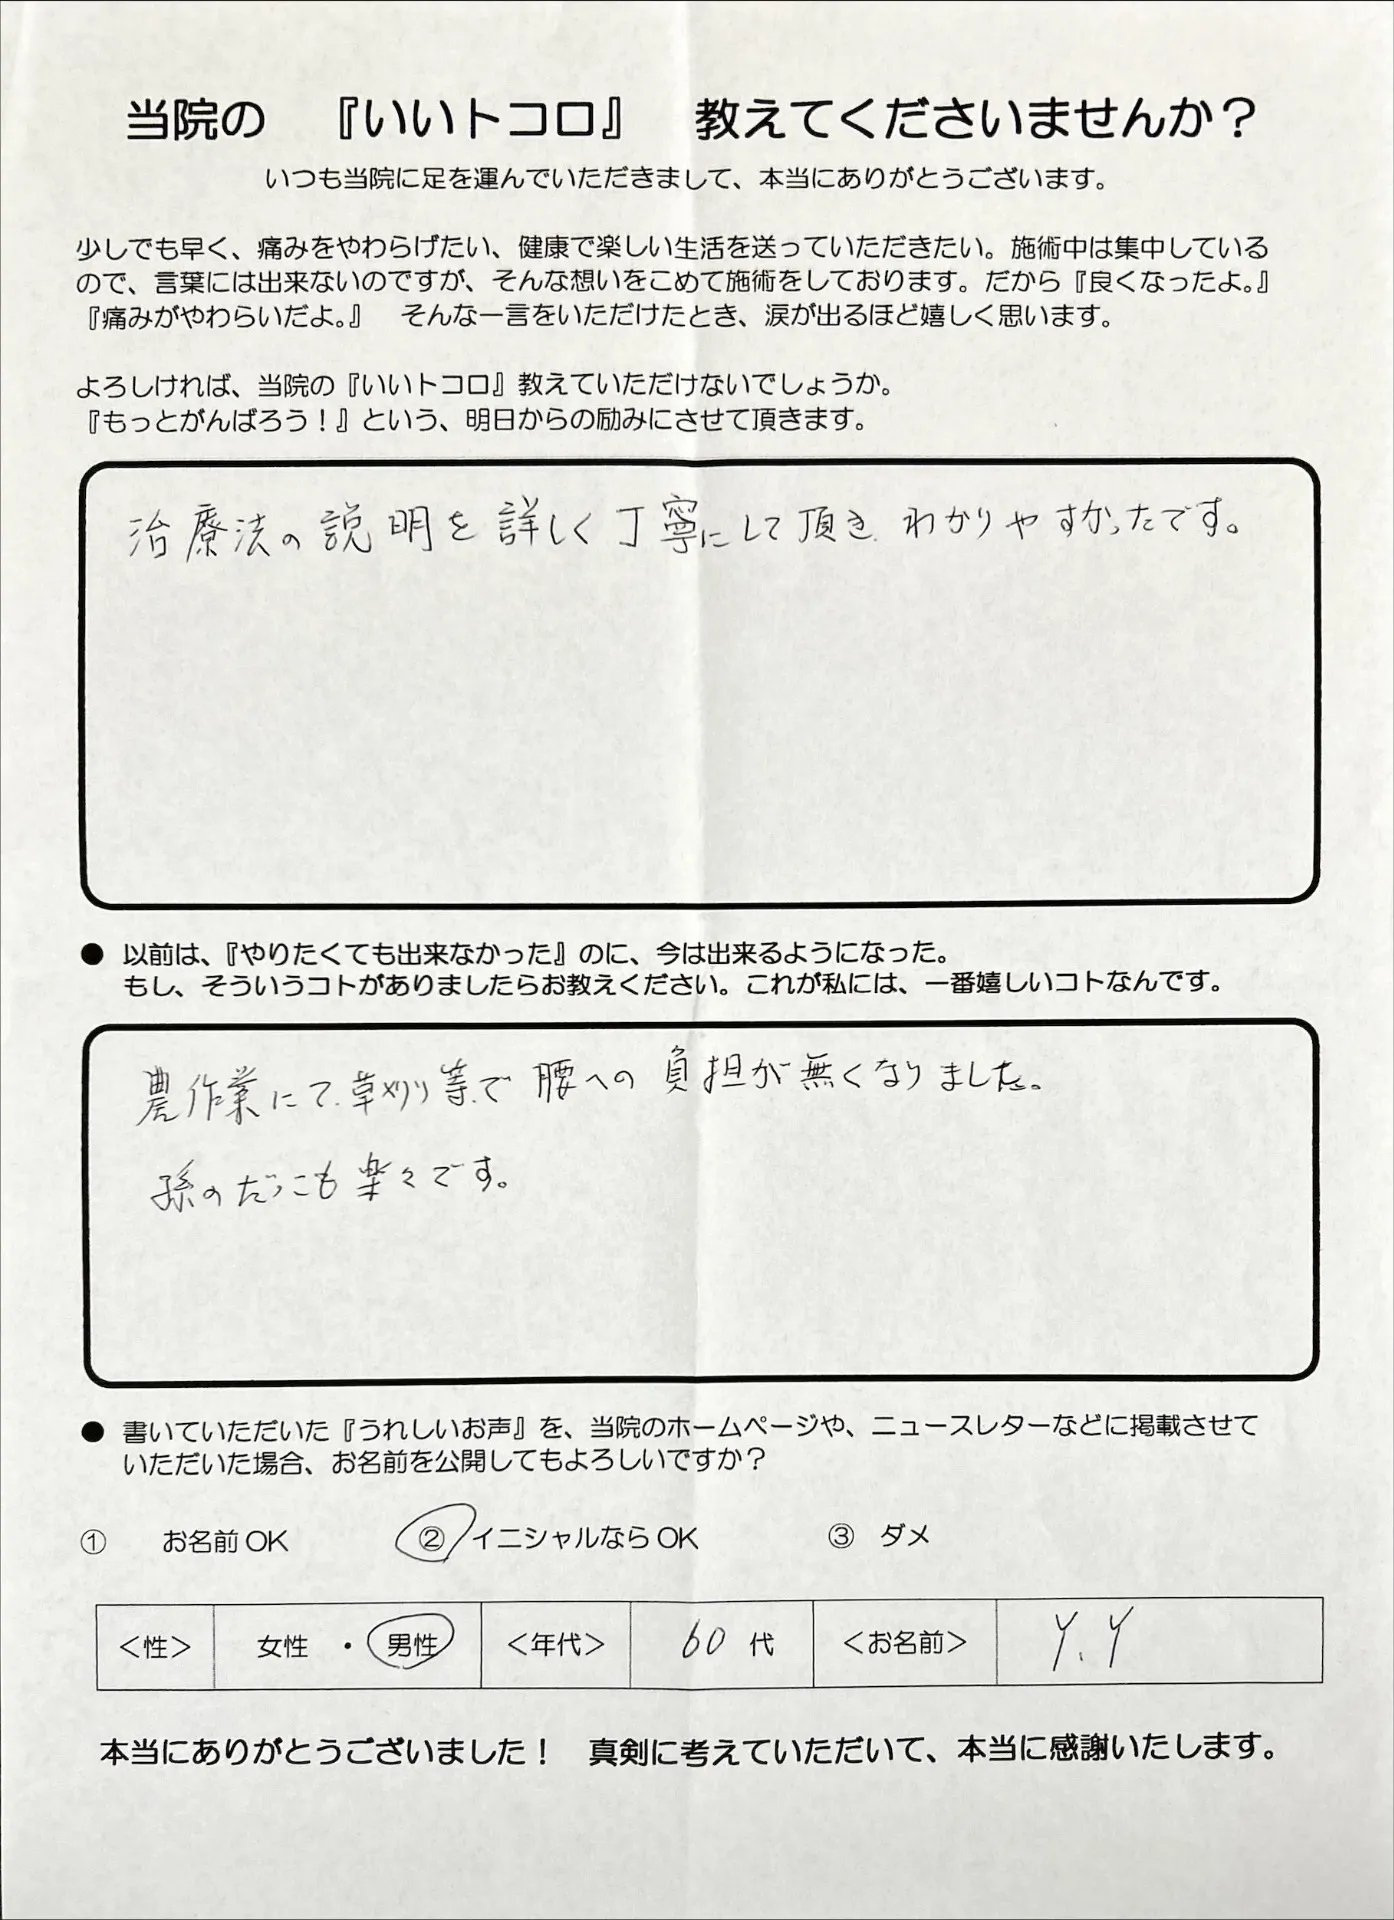 当院の　『いいトコロ』　教えてくださいませんか？
いつも当院に足を運んでいただきまして、本当にありがとうございます。
少しでも早く、痛みをやわらげたい、健康で楽しい生活を送っていただきたい。施術中は集中している
ので、言葉には出来ないのですが、そんな想いをこめて施術をしております。だから『良くなったよ。』
『痛みがやわらいだよ。』　そんな一言をいただけたとき、涙が出るほど嬉しく思います。
よろしければ、当院の『いいトコロ』教えていただけないでしょうか。
『もっとがんばろう！』という、明日からの励みにさせて頂きます。
治療法の説明を詳しく丁寧にして頂き、わかりやすかったです。
● 以前は、『やりたくても出来なかった』のに、今は出来るようになった。
もし、そういうコトがありましたらお教えください。これが私には、一番嬉しいコトなんです。
農作業にて、草刈り等で腰への負担が無くなりました。
孫のだっこも楽々です。
● 書いていただいた『うれしいお声』を、当院のホームページや、ニュースレターなどに掲載させて
いただいた場合、お名前を公開してもよろしいですか？
①　お名前 OK　②　イニシャルなら OK　③　ダメ
＜性＞　女性　・　男性　＜年代＞　60 代　＜お名前＞　Y.Y
本当にありがとうございました！　真剣に考えていただいて、本当に感謝いたします。